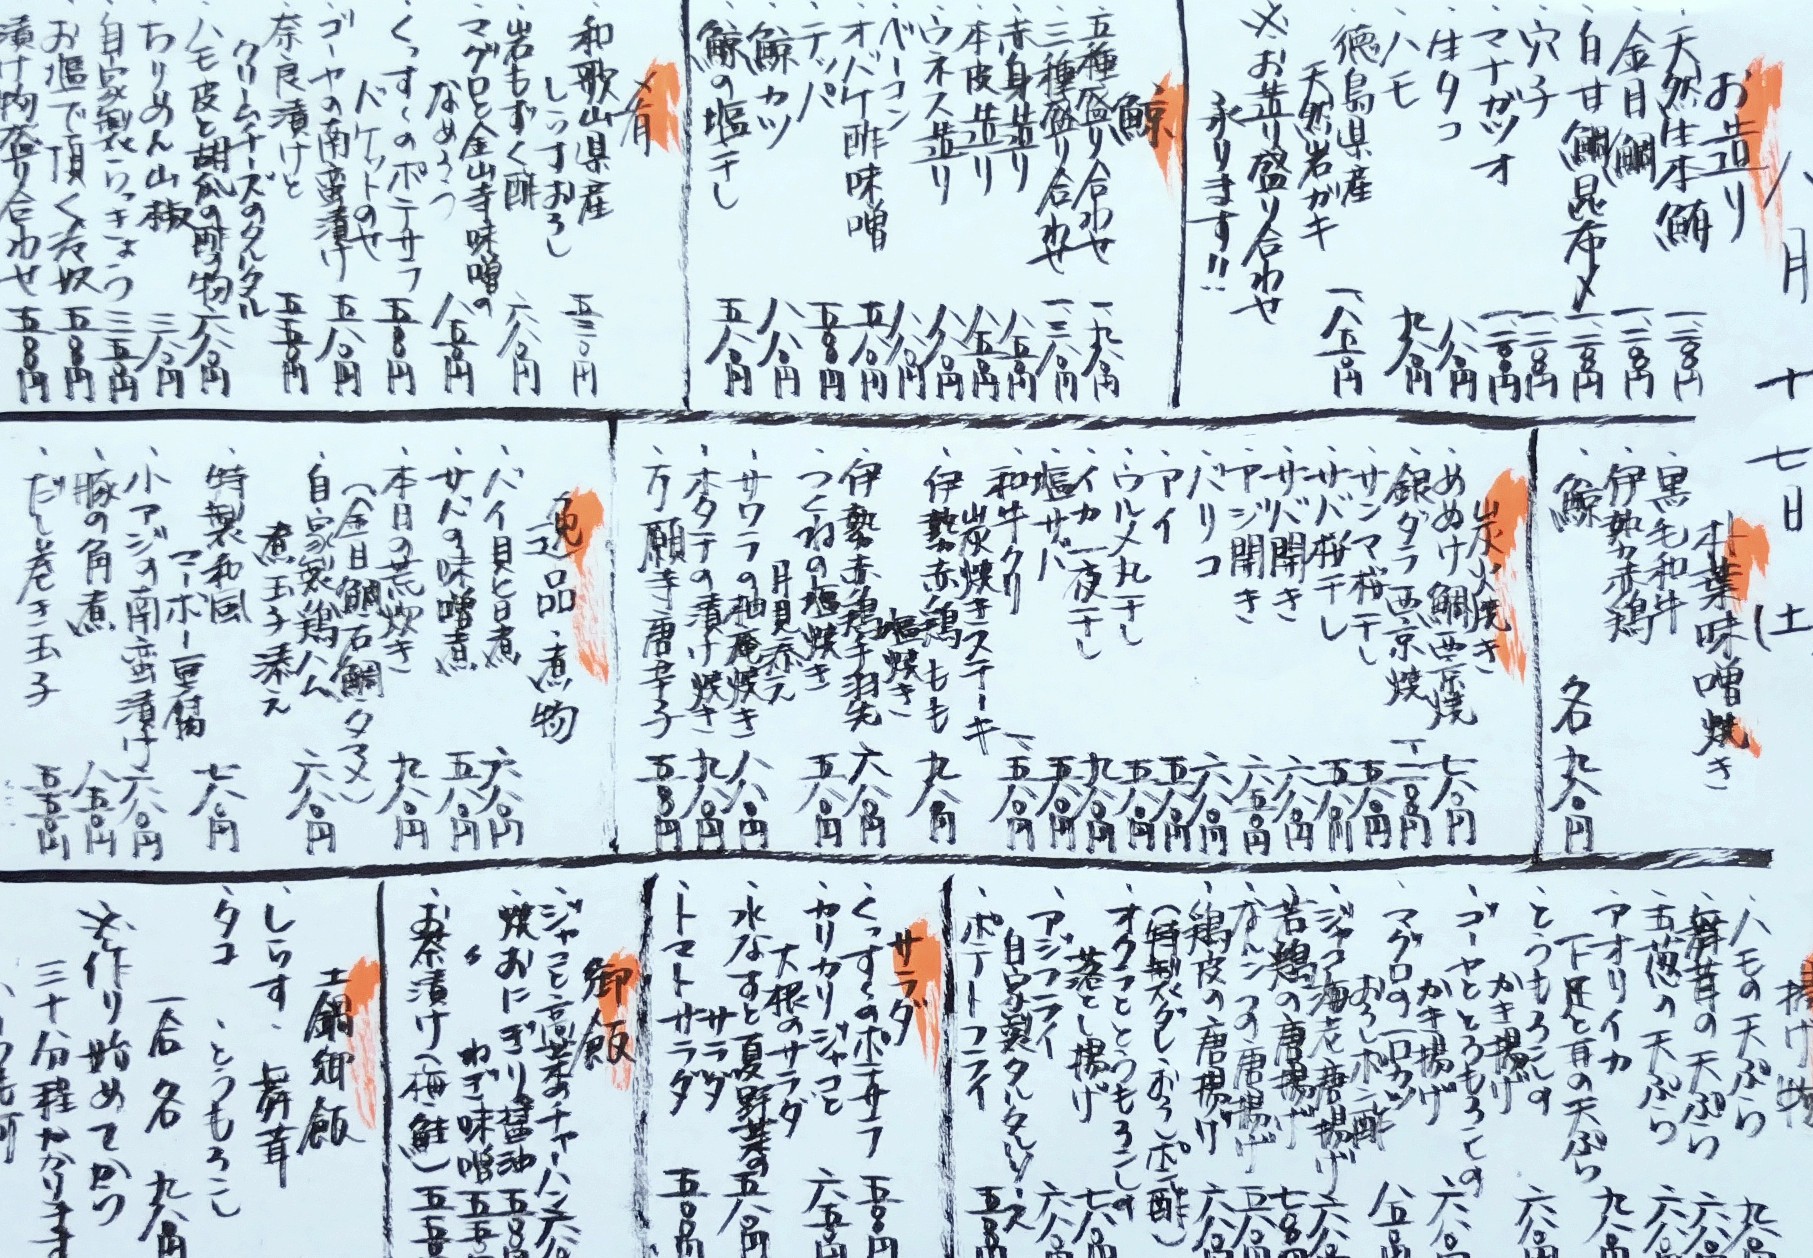 八月十七日(土
お造り
・天然生本鮪 一、二八〇円
・金目鯛 一、二八〇円
・白甘鯛(昆布〆 一、二八〇円
・穴子 一、二八〇円
・マナガツオ 一、二八〇円
・生タコ 八八〇円
・ハモ 九八〇円
・徳島県産
天然岩ガキ 一、八五〇円
※お造り盛り合わせ
承ります!!
鯨
・五種盛り合わせ 一、九八〇円
・三種盛り合わせ 一、三八〇円
・赤身造り 八五〇円
・本皮造り 八五〇円
・ウネス造り 八八〇円
・ベーコン 八八〇円
・オバケ酢味噌 五八〇円
・テッパ 五八〇円
・鯨カツ 八八〇円
・鯨の塩干し 五八〇円
肴
・和歌山県産
しらすおろし 五三〇円
・岩もずく酢 六八〇円
・マグロと金山寺味噌の
なめろう 八五〇円
・くっすぐのポテサラ 五八〇円
バケットのせ
・ゴーヤの南蛮漬け 五八〇円
・奈良漬けと
クリームチーズのタルタル 五五〇円
・ハモ皮と胡瓜の酢の物 六八〇円
・ちりめん山椒 三八〇円
・自家製らっきょう 三五〇円
・お塩で頂く冷奴 五八〇円
漬け物盛り合わせ 五八〇円
朴葉味噌焼き
・黒毛和牛
・伊勢赤鶏
・鯨 各九八〇円
炭火焼き
・めぬけ鯛西京焼 七八〇円
・銀ダラ西京焼
・サンマ桜干し 五八〇円
・サバ桜干し 五八〇円
・サバ開き 六八〇円
・アジ開き 六五〇円
・バリコ 六八〇円
・アイ 五八〇円
・ウルメ丸干し 五八〇円
・イカ一夜干し 九八〇円
・塩サバ 五八〇円
・和牛クリ
炭焼きステーキ
・伊勢赤鶏もも
塩焼き 九八〇円
・伊勢赤鶏手羽先 六八〇円
・つくねの塩焼き 五八〇円
月見添え
・サワラの柚庵焼き 八八〇円
・ホタテの漬け焼き 九八〇円
・万願寺唐辛子 五八〇円
逸品・煮物
・バイ貝旨煮 六八〇円
・サバの味噌煮 五八〇円
・本日の荒炊き 九八〇円
(金目鯛・石鯛・タマメ)
・自家製鶏ハム
煮玉子添え 六八〇円
・特製和風
マーボー豆腐 七八〇円
・小アジの南蛮漬け 六八〇円
・豚の角煮 八五〇円
・だし巻き玉子 五五〇円
揚げ物
・ハモの天ぷら 九八
・舞茸の天ぷら 六八〇
・玉葱の天ぷら 六八〇
・アオリイカ
下足と耳の天ぷら 九八〇
・とうもろこしの
かき揚げ 六八〇
・ゴーヤととうもろこしの
かき揚げ 六八〇
・マグロの一口カツ
おろしポン酢 八五〇
・ジャコ海老唐揚げ 六八〇
・若鶏の唐揚げ 七八〇
・なんこつの唐揚げ 五八〇
・鶏皮の唐揚げ 六八〇
(特製ダレ・おろしポン酢)
・オクラととうもろこしの
落とし揚げ 七八〇
・アジフライ
自家製タルタルソース 六八〇
・ポテトフライ 五八〇
サラダ
・くっすぐのポテサラ 五八〇円
・カリカリジャコと
大根のサラダ 六五〇円
・水なすと夏野菜の
サラダ 五八〇円
・トマトサラダ 五八〇円
御飯
・ジャコと高菜のチャーハン 六八〇
・焼おにぎり醤油 五五〇
・〃 ねぎ味噌 五五〇
・お茶漬け(梅・鮭) 五五〇
土鍋御飯
・しらす・舞茸
・タコ・とうもろこし
一合 各 九八〇円
※作り始めてから
三十分程かかります